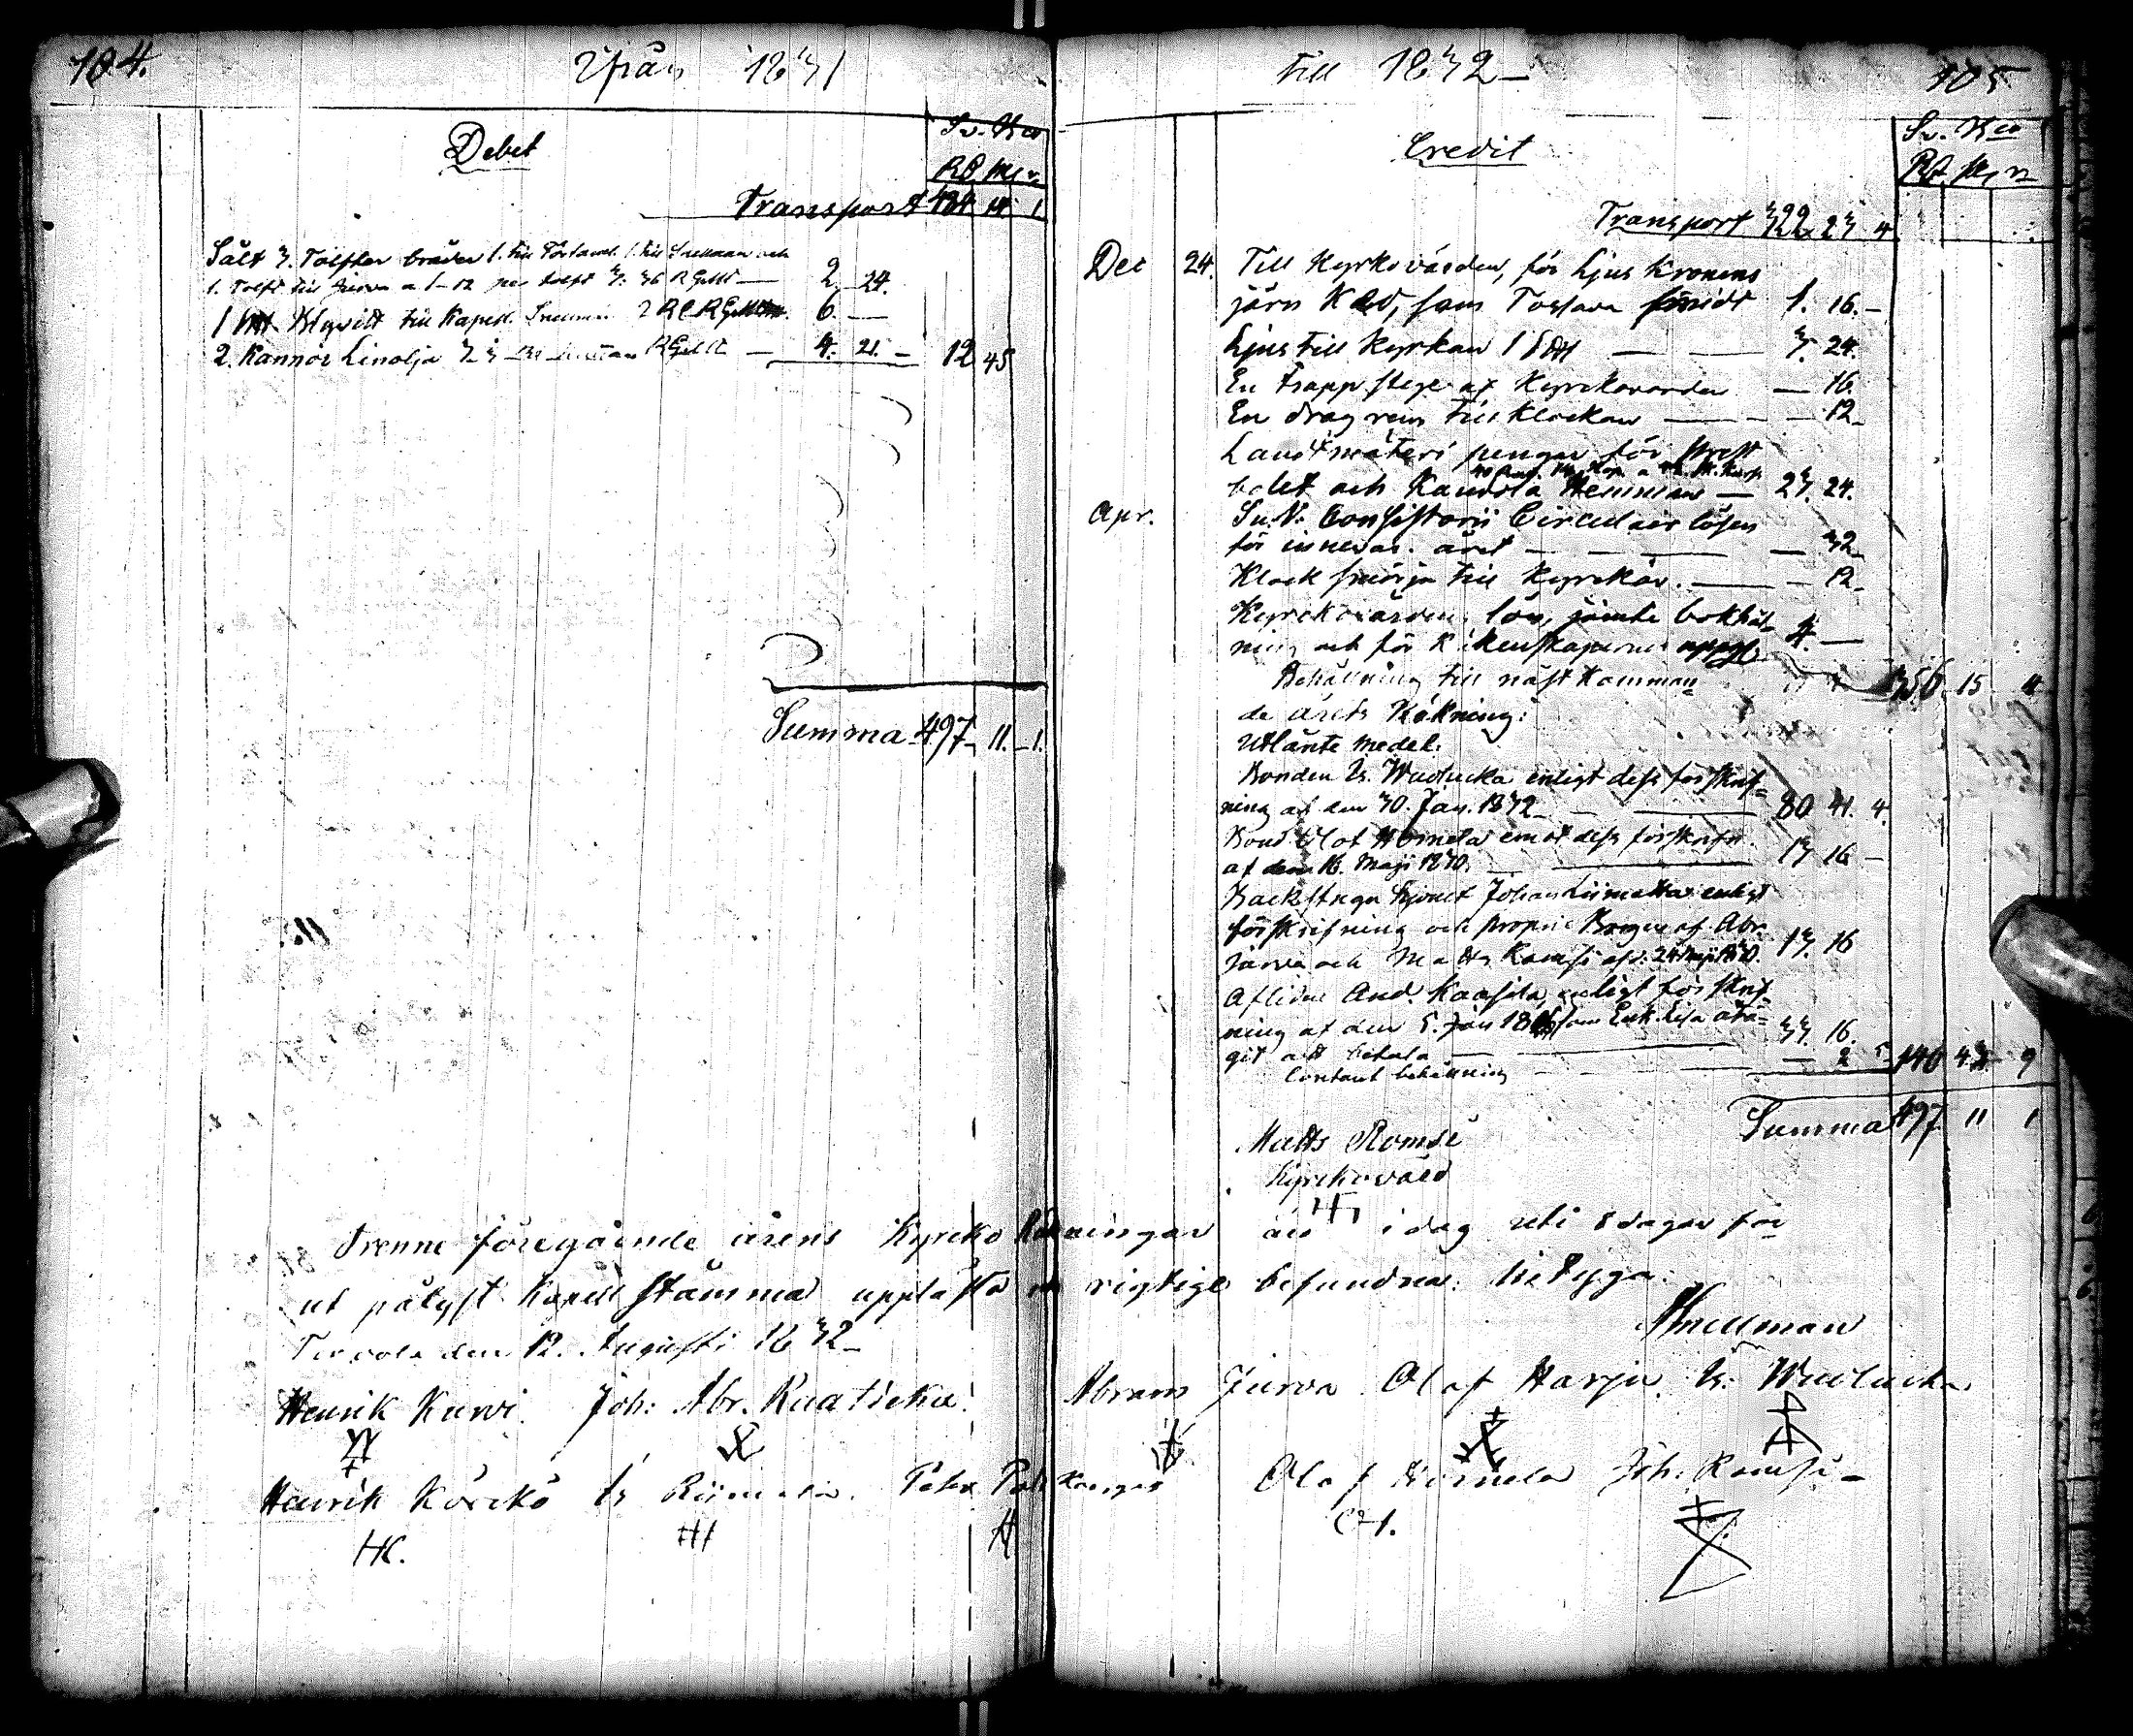 104.
Ifrån 1831
Debet
Sv. Bco
Rd. sk. r.
Transport 484 14 1
Sålt 3. Tolfter bräder 1. till Torland. 1. till Snellman och
1. Tolft till Jurva a 1-12 per tolft 3: 36 RGeld — 2. 24.
1 Blyvitt till Kapell. Snellman 2 Rd RGeld. 6. —
2. Kannor Linolja RGeld — 4. 21. — 12 45
Summa 497 - 11. - 1.
till 1832
105
Credit
Sv. Bco
Rd. sk. r.
Transport 322 23 4
Dec 24. Till Kyrkovärden, för Ljus Kronens
järn Ked, som smidt 1. 16. -
Ljus till Kyrkan 1 — 3. 24.
En trappstege af Kyrckovärden — 16.
En drag rem till Klockan — 12
Landtmäteri pengar för Prest
bolet och Kaukola Hemman — 23. 24.
Apr. Consistorii Circulair lösen
för innevar. året — 32
Klock smörja till Kyrckan. — 12
Kyrckovärdens lön, jämte bokhål-
ning och för Räkenskapernes uppgf. 4. —
Behållning till näst Komman= 356 15 4
de årets Räkning:
Utlånte medel.
Bonden Is. Wuolucka enligt dess förskrif=
ning af den 30. Jan. 1832 — 80 41. 4.
Bond. Olof Hornela emot dess förskrifn.
af den 16. Maji 1830. — 13 16 -
Backstugu hjonet Johan Liimatta enligt
förskrifning och proprie Borgen af Abr.
Jurva och Matts Romsi af d. 24 Maji 1830. 13. 16
Aflidne And. Kaasila, enligt förskrif-
ning af den 5. Jan 18 som Enk. Lisa åta=
git att betala — 33. 16.
Contant behållning — 2 5 140 43 9
Summa 497 11 1
Matts Romsi
Kyrckovärd
Trenne föregående årens Kyrcko Räkningar äro i dag uti 8 dagar för=
ut pålyst Kapell stämma upplästa och rigtige befundna. betyga.
Tervola den 12. Augusti 1832
Snellman
Henrik Kurvi. Joh: Abr. Kaatieka. Abram Jurva Olof Harju. Is. Wuolucka
Henrik Körckö Is Riimala. Peter Olof Hornela Joh: Romsi
HK.
OH.